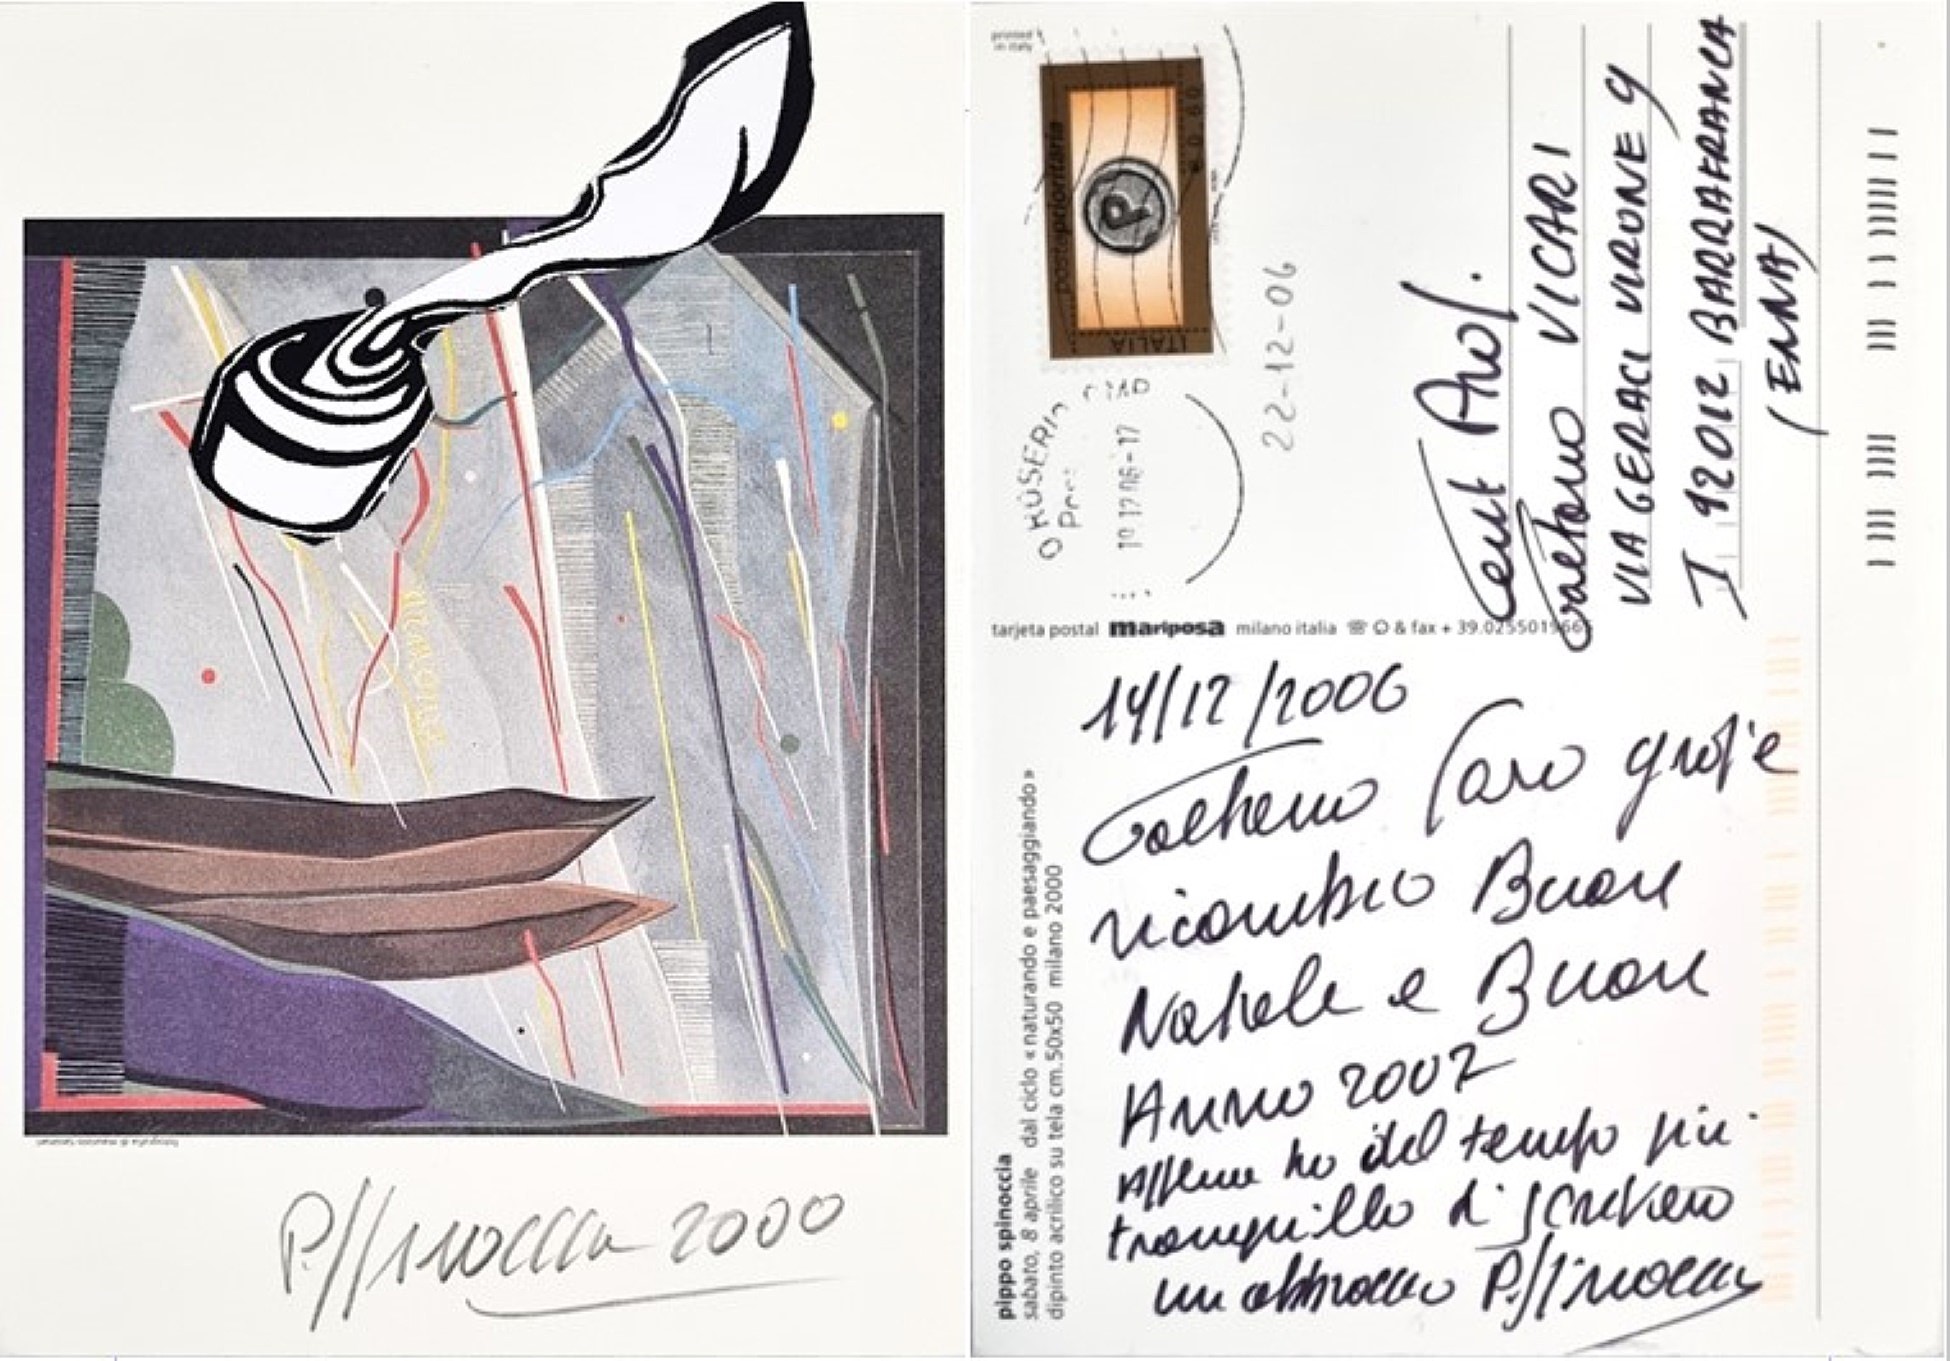 P. Spinoccia 2000
printed
in italy
postaprioritaria
€ 0,60
P
ITALIA
22-12-06
Gent. Prof.
Gaetano VICARI
VIA GERACI VIRONE 9
I 92012 BARRAFRANCA
(ENNA)
tarjeta postal mariposa milano italia & fax + 39.025501
pippo spinoccia
sabato, 8 aprile dal ciclo « naturando e paesaggiando »
dipinto acrilico su tela cm. 50x50 milano 2000
14/12/2006
Gaetano Caro grazie
ricambio Buon
Natale e Buon
Anno 2007
Appena ho del tempo più
tranquillo ti scriverò
un abbraccio P. Spinoccia